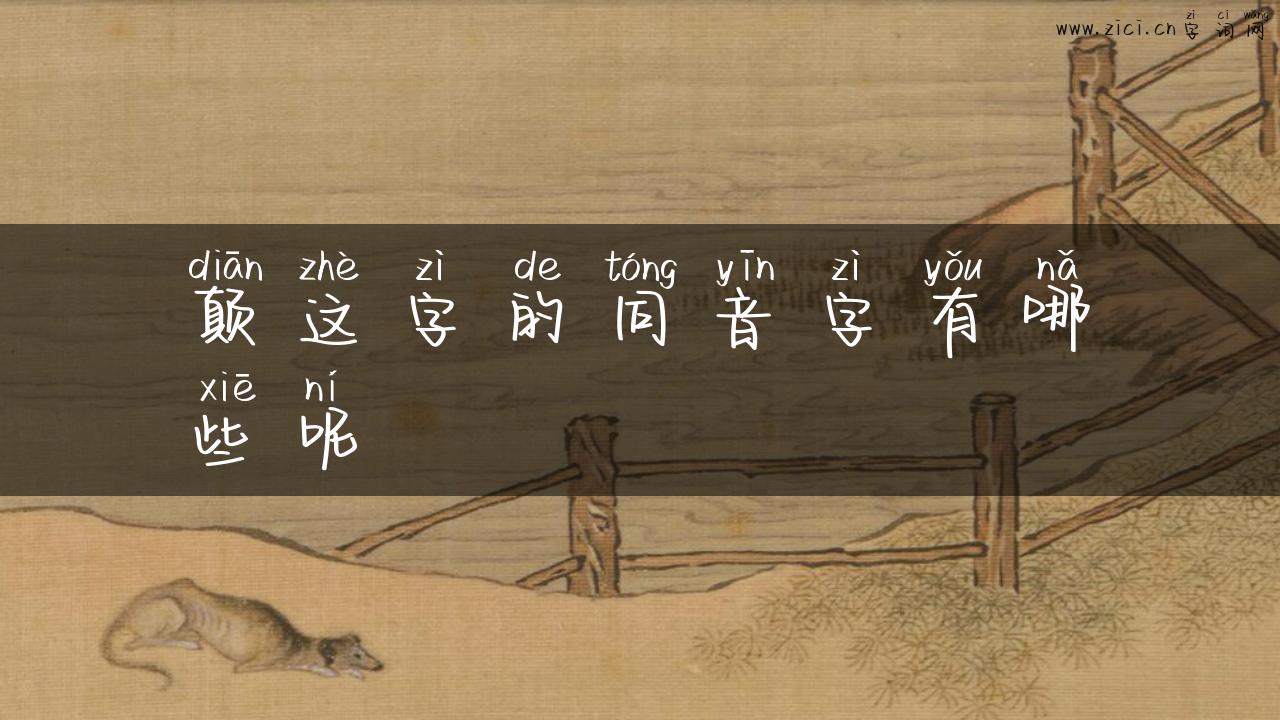 zì cí wǎng
www.zici.cn 字词网
diān zhè zì de tóng yīn zì yǒu nǎ
颠这字的同音字有哪
xiē ní
些呢